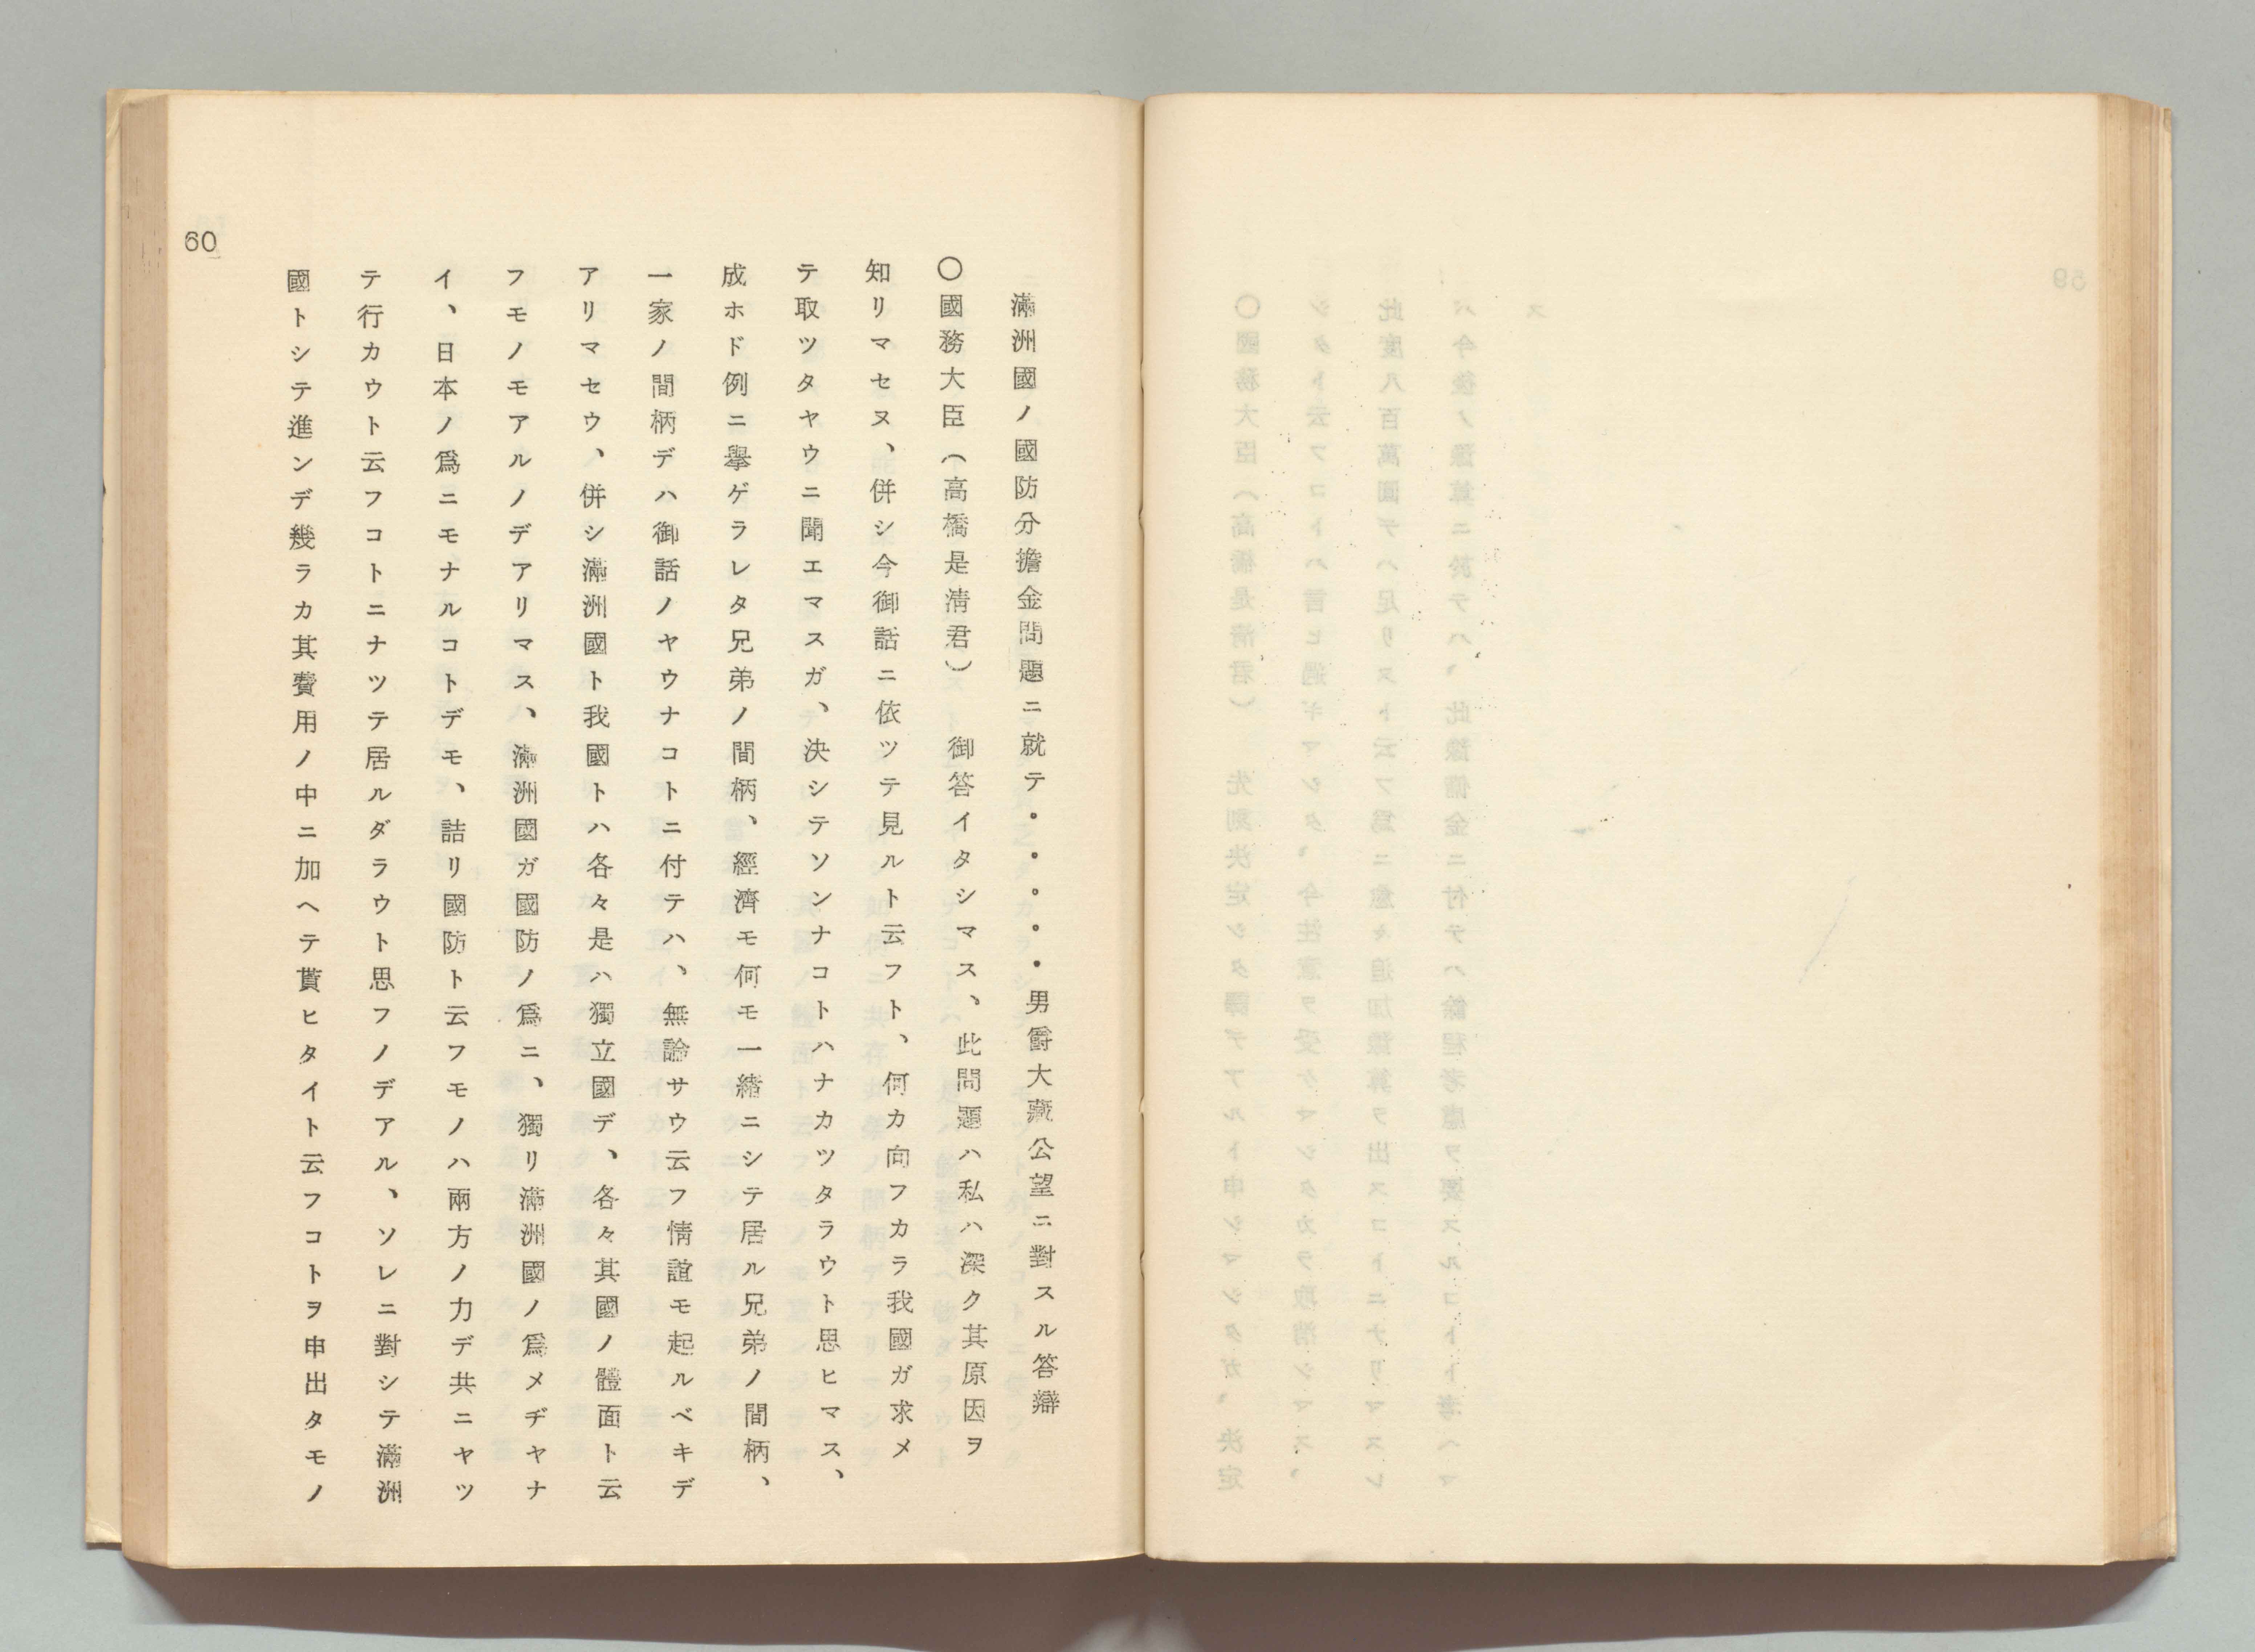 滿洲國ノ國防分擔金問題ニ就テ・・・・・男爵大藏公望ニ對スル答辯
〇國務大臣(高橋是淸君) 御答イタシマス、此問題ハ私ハ深ク其原因ヲ
知リマセヌ、併シ今御話ニ依ツテ見ルト云フト、何カ向フカラ我國ガ求メ
テ取ツタヤウニ聞エマスガ、決シテソンナコトハナカツタラウト思ヒマス、
成ホド例ニ擧ゲラレタ兄弟ノ間柄、經濟モ何モ一緖ニシテ居ル兄弟ノ間柄、
一家ノ間柄デハ御話ノヤウナコトニ付テハ、無論サウ云フ情誼モ起ルベキデ
アリマセウ、併シ滿洲國ト我國トハ各々是ハ獨立國デ、各々其國ノ體面ト云
フモノモアルノデアリマス、滿洲國ガ國防ノ爲ニ、獨リ滿洲國ノ爲メヂヤナ
イ、日本ノ爲ニモナルコトデモ、詰リ國防ト云フモノハ兩方ノ力デ共ニヤツ
テ行カウト云フコトニナツテ居ルダラウト思フノデアル、ソレニ對シテ滿洲
國トシテ進ンデ幾ラカ其費用ノ中ニ加ヘテ貰ヒタイト云フコトヲ申出タモノ
60